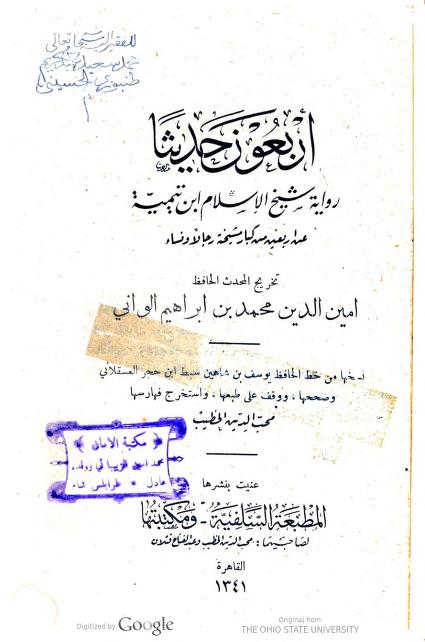 للفقير إليه سبحانه وتعالى
محمد سعيد
الحسيني
أربعون حديثا
رواية شيخ الإسلام ابن تيمية
عن أربعين من كبار مشيخة رجالا ونساء
تخريج المحدث الحافظ
امين الدين محمد بن ابراهيم الواني
نسخها من خط الحافظ يوسف بن شاهين سبط ابن حجر العسقلاني
وصححها ، ووقف على طبعها ، واستخرج فهارسها
محب الدين الخطيب
مكتبة الامان
محمد امين
عادل * طرابلس شام
عنيت بنشرها
المطبعة السلفية - ومكتبتها
لصاحبيها : محب الدين الخطيب وعبد الفتاح قتلان
القاهرة
١٣٤١
Digitized by Google
Original from
THE OHIO STATE UNIVERSITY